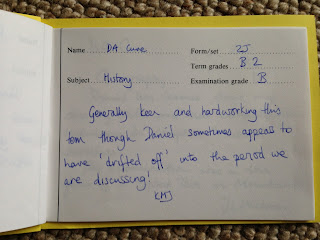 Name DA Cume Form/set 2J
Term grades B.2
Subject History Examination grade B
Generally keen and hardworking this
term though Daniel sometimes appears to
have 'drifted off' into the period we
are discussing!